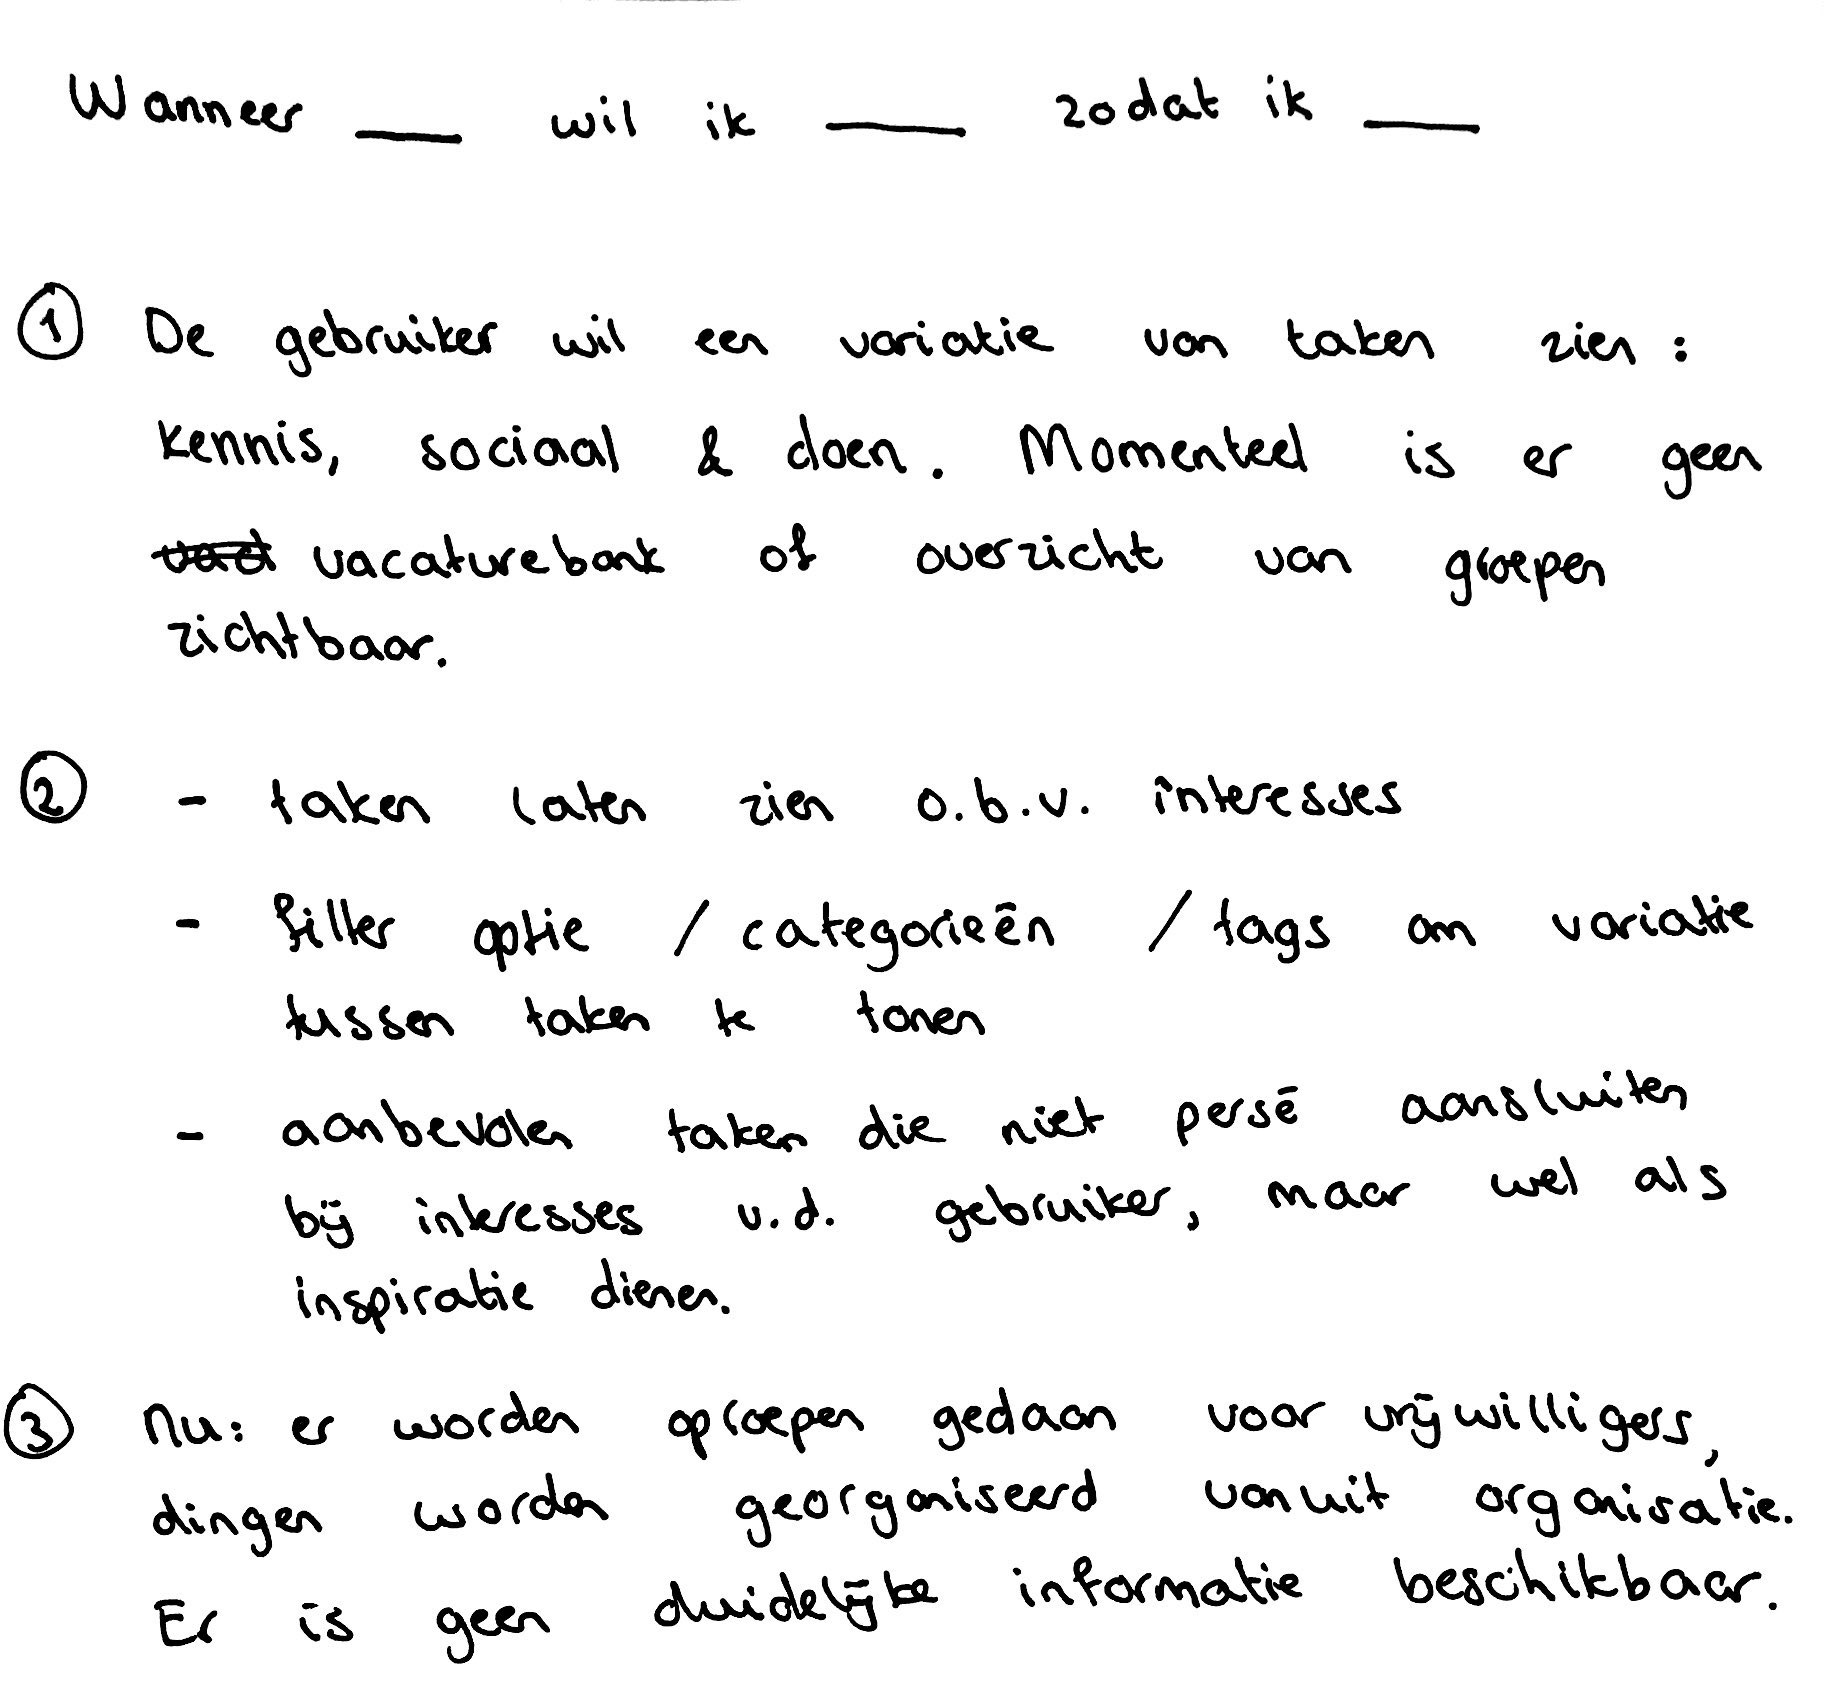 Wanneer ___ wil ik ___ zodat ik ___
① De gebruiker wil een variatie van taken zien:
kennis, sociaal & doen. Momenteel is er geen
vacaturebank of overzicht van groepen
zichtbaar.
② - taken laten zien o.b.v. interesses
- filter optie / categorieën / tags om variatie
tussen taken te tonen
- aanbevolen taken die niet persé aansluiten
bij interesses v.d. gebruiker, maar wel als
inspiratie dienen.
③ Nu: er worden oproepen gedaan voor vrijwilligers,
dingen worden georganiseerd vanuit organisatie.
Er is geen duidelijke informatie beschikbaar.